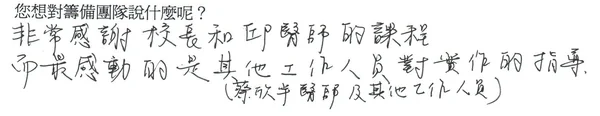 您想對籌備團隊說什麼呢？
非常感謝校長和邱醫師的課程
而最感動的是其他工作人員對實作的指導.
(蔡欣半醫師及其他工作人員)